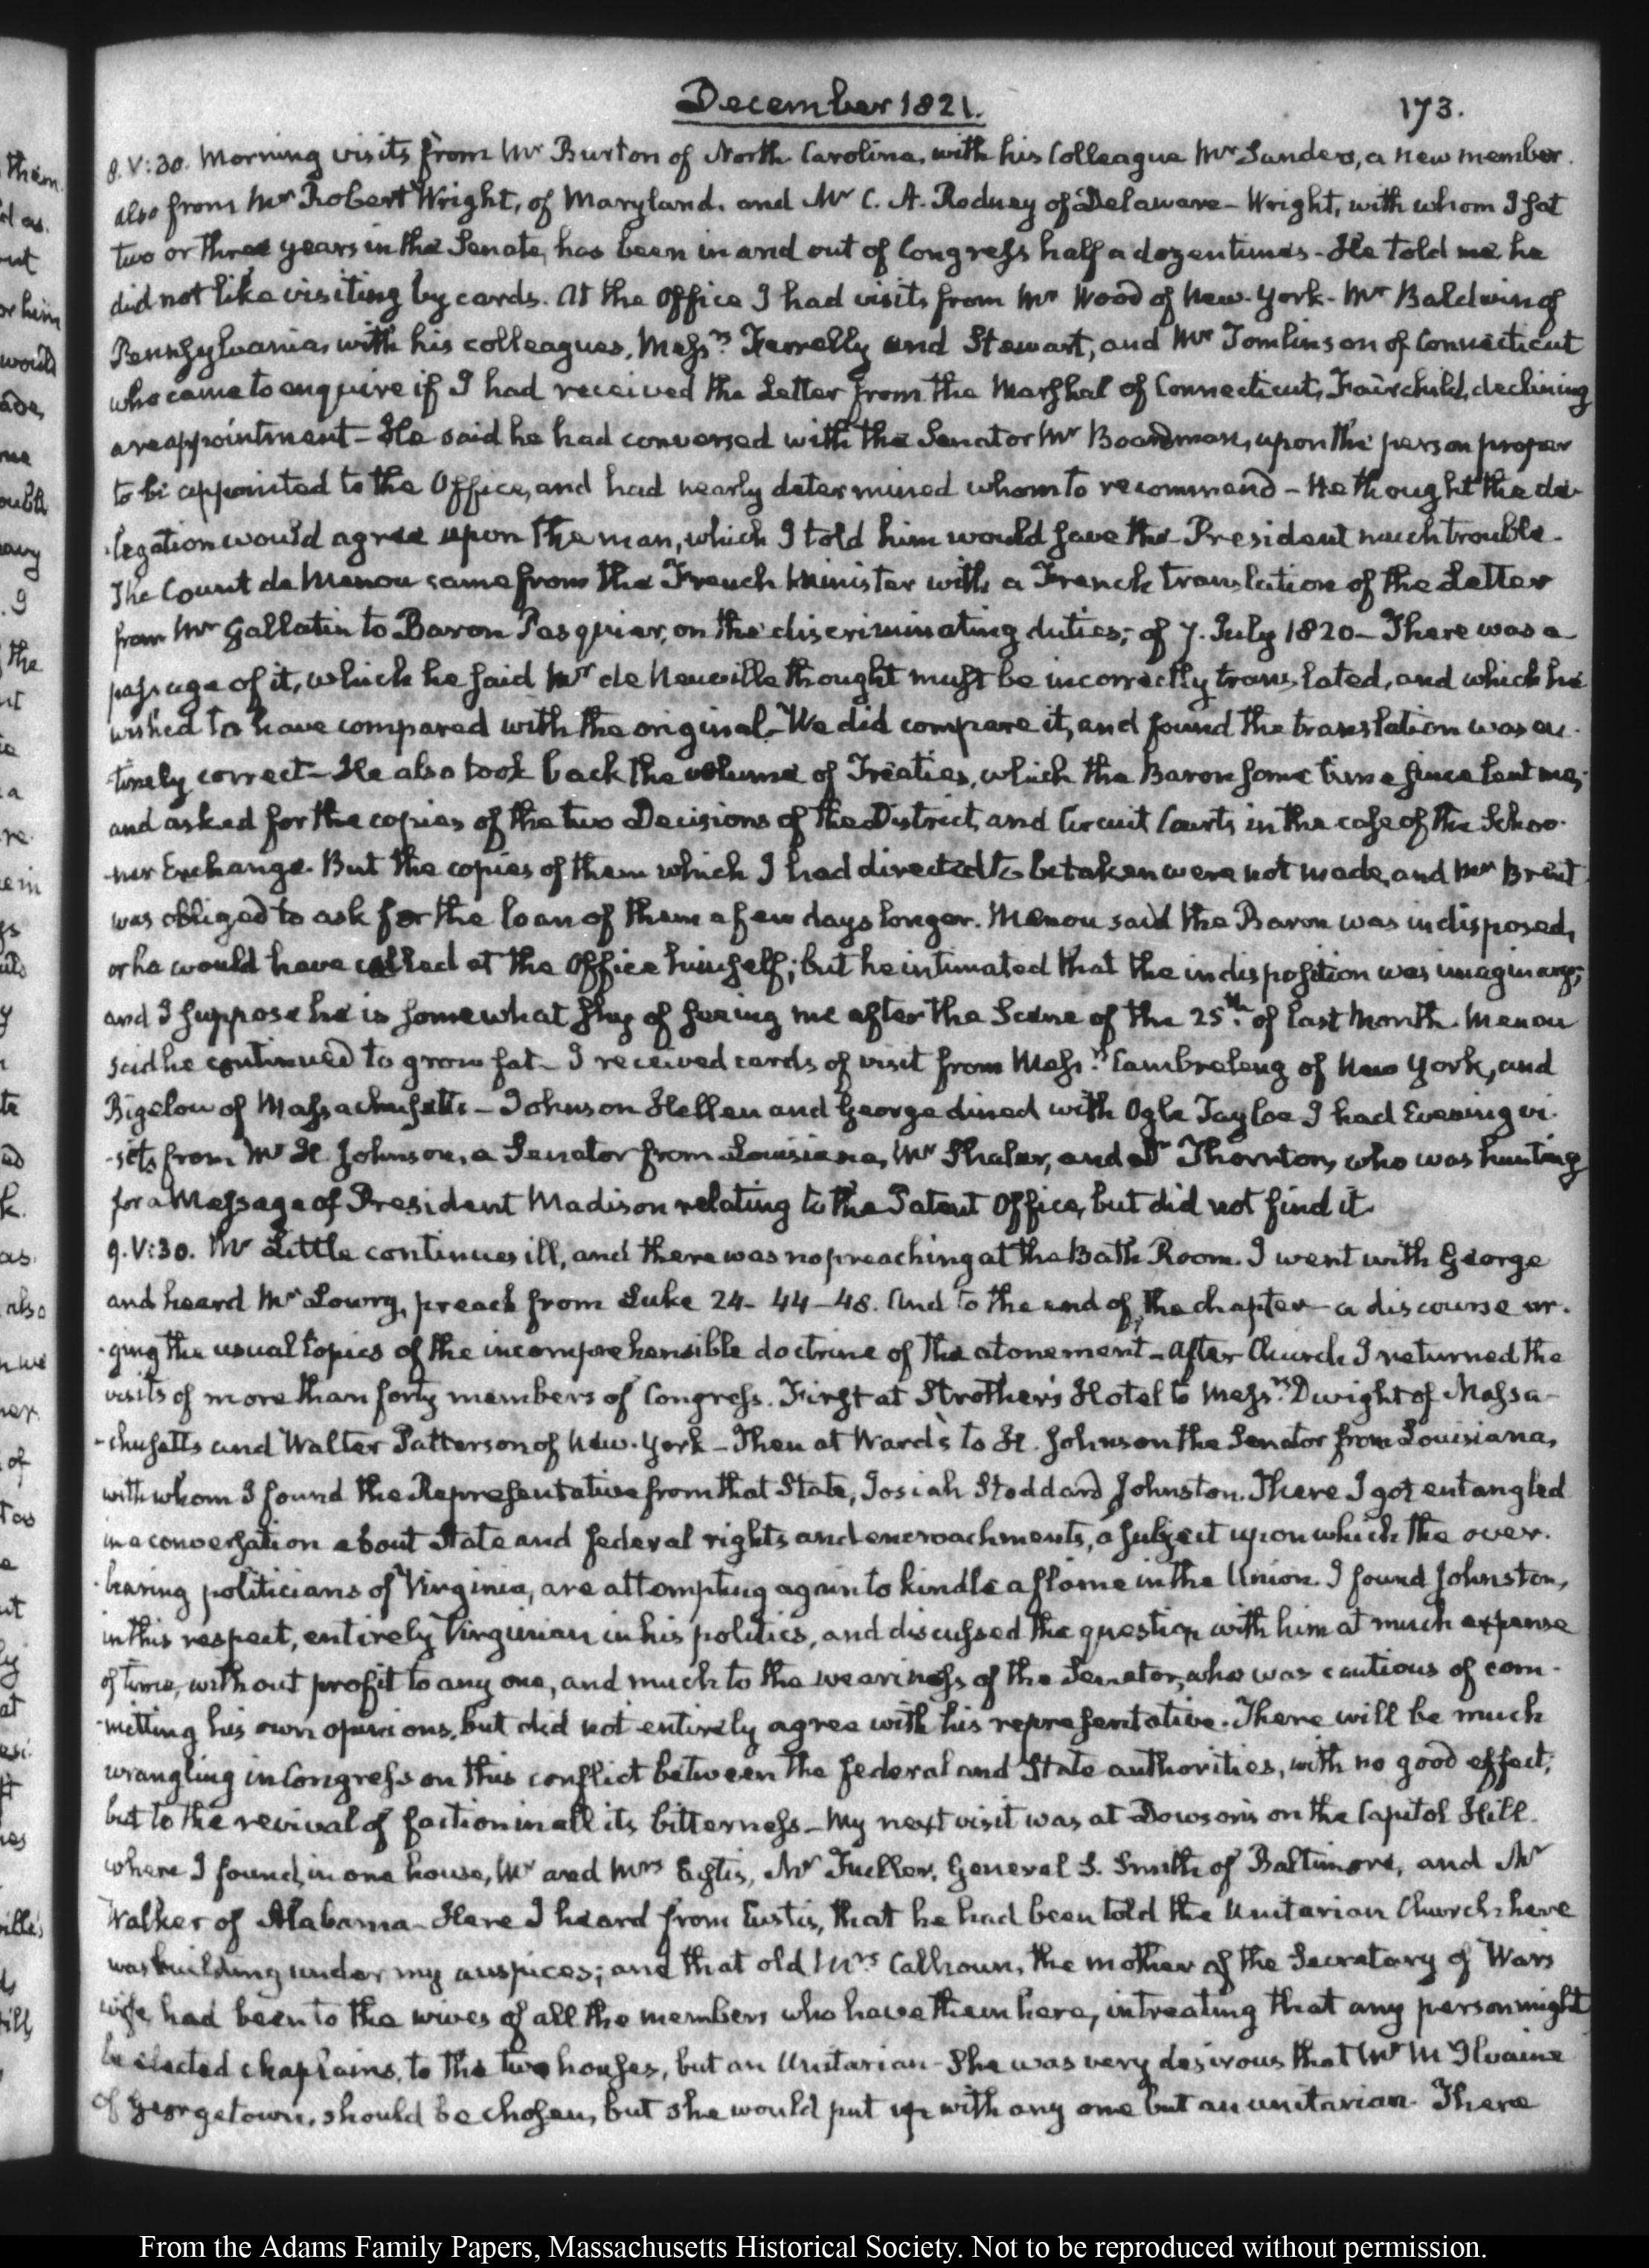 December 1821.
173.
8. V:30. Morning visits from Mr Burton of North Carolina, with his Colleague Mr Sanders, a new member.
also from Mr Robert Wright, of Maryland, and Mr C. A. Rodney of Delaware - Wright, with whom I sat
two or three years in the Senate, has been in and out of Congress half a dozen times - He told me he
did not like visiting by cards. At the Office I had visits from Mr Wood of New-York - Mr Baldwin of
Pennsylvania, with his colleagues, Messrs Farrelly and Stewart, and Mr Tomlinson of Connecticut
who came to enquire if I had received the Letter from the Marshal of Connecticut, Fairchild, declining
a reappointment - He said he had conversed with the Senator Mr Boardman, upon the person proper
to be appointed to the Office, and had nearly determined whom to recommend - He thought the de-
-legation would agree upon the man, which I told him would save the President much trouble.
The Count de Menou came from the French Minister with a French translation of the Letter
from Mr Gallatin to Baron Pasquier, on the discriminating duties; of 7. July 1820 - There was a
passage of it, which he said Mr de Neuville thought must be incorrectly translated, and which he
wished to have compared with the original. We did compare it, and found the translation was en-
-tirely correct - He also took back the volume of Treaties, which the Baron some time since lent me;
and asked for the copies of the two Decisions of the District, and Circuit Courts in the case of the Schoo-
-ner Exchange. But the copies of them which I had directed to be taken were not made, and Mr Brent
was obliged to ask for the loan of them a few days longer. Menou said the Baron was indisposed,
or he would have called at the Office himself; but he intimated that the indisposition was imaginary;
and I suppose he is somewhat shy of seeing me after the Scene of the 25th. of last Month. Menou
said he continued to grow fat - I received cards of visit from Messrs Cambreleng of New York, and
Bigelow of Massachusetts - Johnson Hellen and George dined with Ogle Tayloe I had Evening vi-
-sits from Mr H. Johnson, a Senator from Louisiana, Mr Shaler, and Dr Thornton, who was hunting
for a Message of President Madison relating to the Patent Office, but did not find it.
9. V:30. Mr Little continues ill, and there was no preaching at the Bath Room. I went with George
and heard Mr Lowry, preach from Luke 24 - 44-48. And to the end of the chapter - a discourse ur-
-ging the usual topics of the incomprehensible doctrine of the atonement - After Church I returned the
visits of more than forty members of Congress. First at Strother's Hotel to Messrs Dwight of Massa-
-chusetts and Walter Patterson of New-York - Then at Ward's to H. Johnson the Senator from Louisiana,
with whom I found the Representative from that State, Josiah Stoddard Johnston. There I got entangled
in a conversation about State and federal rights and encroachments, a subject upon which the over-
-bearing politicians of Virginia, are attempting again to kindle a flame in the Union. I found Johnston,
in this respect, entirely Virginian in his politics, and discussed the question with him at much expense
of time, without profit to any one, and much to the weariness of the Senator, who was cautious of com-
-mitting his own opinions, but did not entirely agree with his representative. There will be much
wrangling in Congress on this conflict between the federal and State authorities, with no good effect;
but to the revival of faction in all its bitterness - My next visit was at Dowson's on the Capitol Hill.
where I found, in one house, Mr and Mrs Eustis, Mr Fuller, General S. Smith of Baltimore, and Mr
Walker of Alabama - Here I heard from Eustis, that he had been told the Unitarian Church here
was building under my auspices; and that old Mrs Calhoun, the mother of the Secretary of War's
wife, had been to the wives of all the members who have them here, intreating that any person might
be elected chaplains, to the two houses, but an Unitarian - She was very desirous that Mr McIlvaine
of Georgetown, should be chosen, but she would put up with any one but an unitarian. There
From the Adams Family Papers, Massachusetts Historical Society. Not to be reproduced without permission.